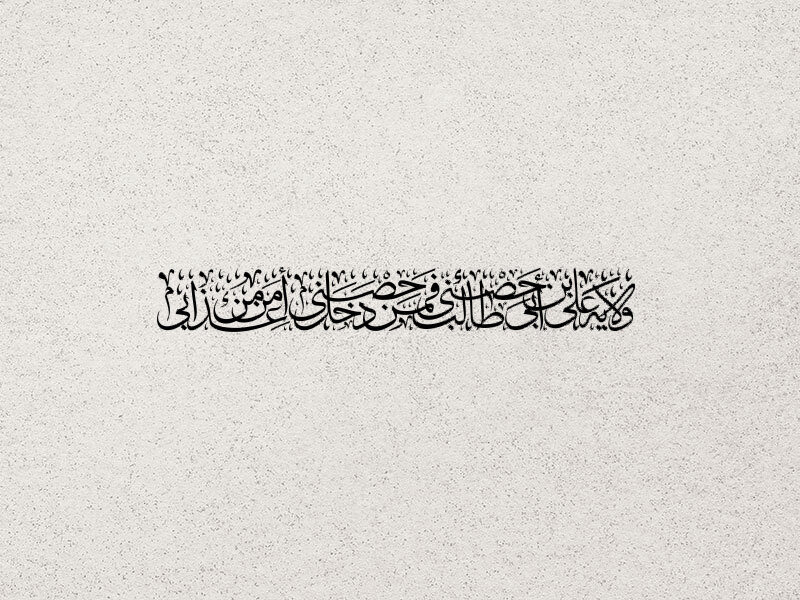 ولاية علي بن أبي طالب حصني فمن دخل حصني أمن من عذابي